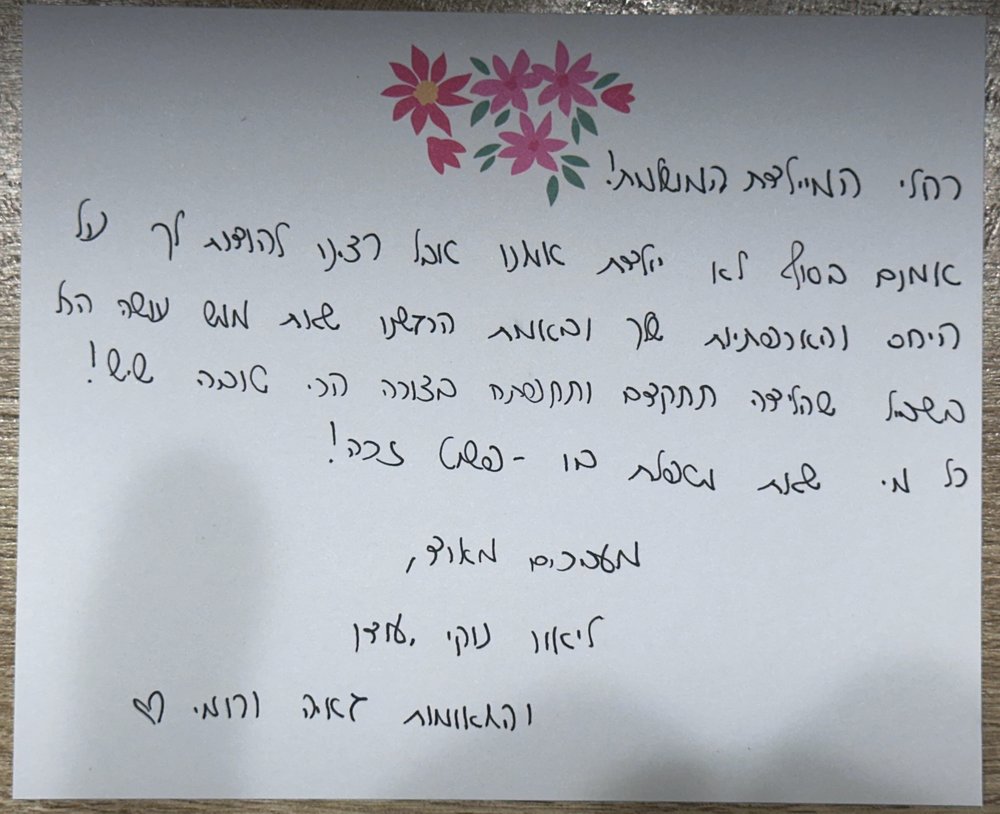 רחלי המיילדת המושלמת!
אמנם בסוף לא יילדת אותנו אבל רצינו להודות לך על
היחס והאכפתיות שלך ובאמת הרגשנו שאת ממש עושה הכל
בשביל שהלידה תתקדם ותתפתח בצורה הכי טובה שיש!
כל מי שאת מטפלת בו - פשוט זכה!
מעריכים מאוד,
ליאור נוקי, עדן
והתאומות גאיה ורומי ♡